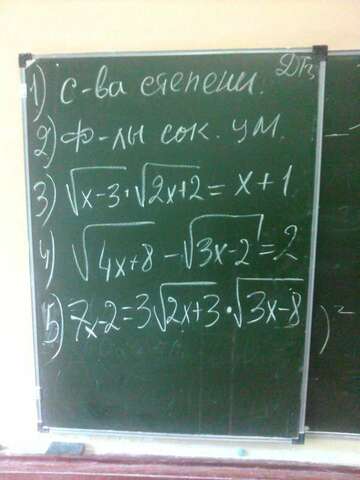 Д/з
1) С-ва степени.
2) Ф-лы сок. ум.
3) √x-3 · √2x+2 = x+1
4) √4x+8 - √3x-2 = 2
5) 7x-2 = 3√2x+3 · √3x-8
)²